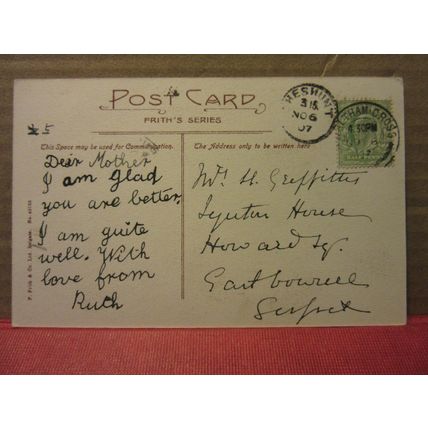 POST CARD
FRITH'S SERIES.
This Space may be used for Communication.
The Address only to be written here
Dear Mother
I am glad
you are better.
I am quite
well. With
love from
Ruth
Mrs H. Griffiths
House
Howard Sq.
Eastbourne
Sussex
CHESHUNT
NO 6
07
WALTHAM CROSS
6.30PM
F. Frith & Co. Ltd. Reigate. No.